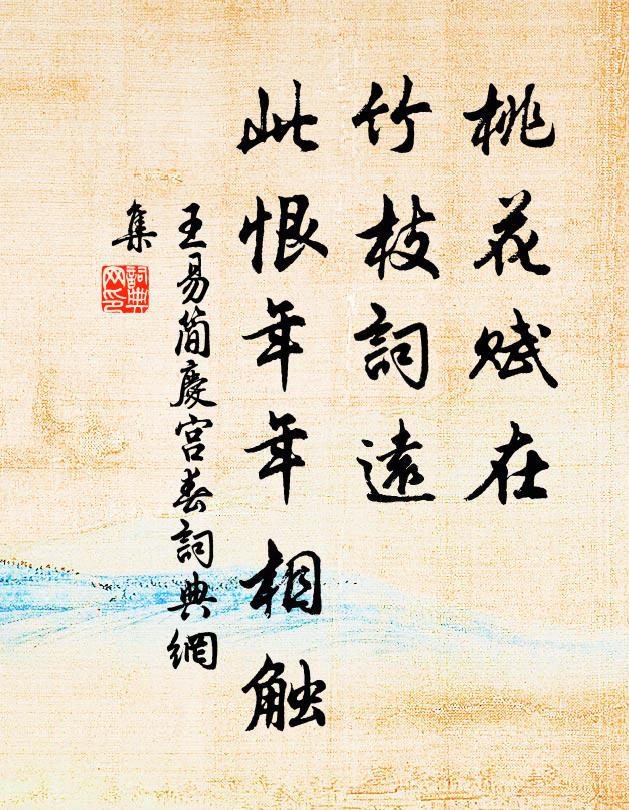 桃花赋在
竹枝詞遠
此恨年年相触
王易简慶宫春詞典網
集
詞典
网印